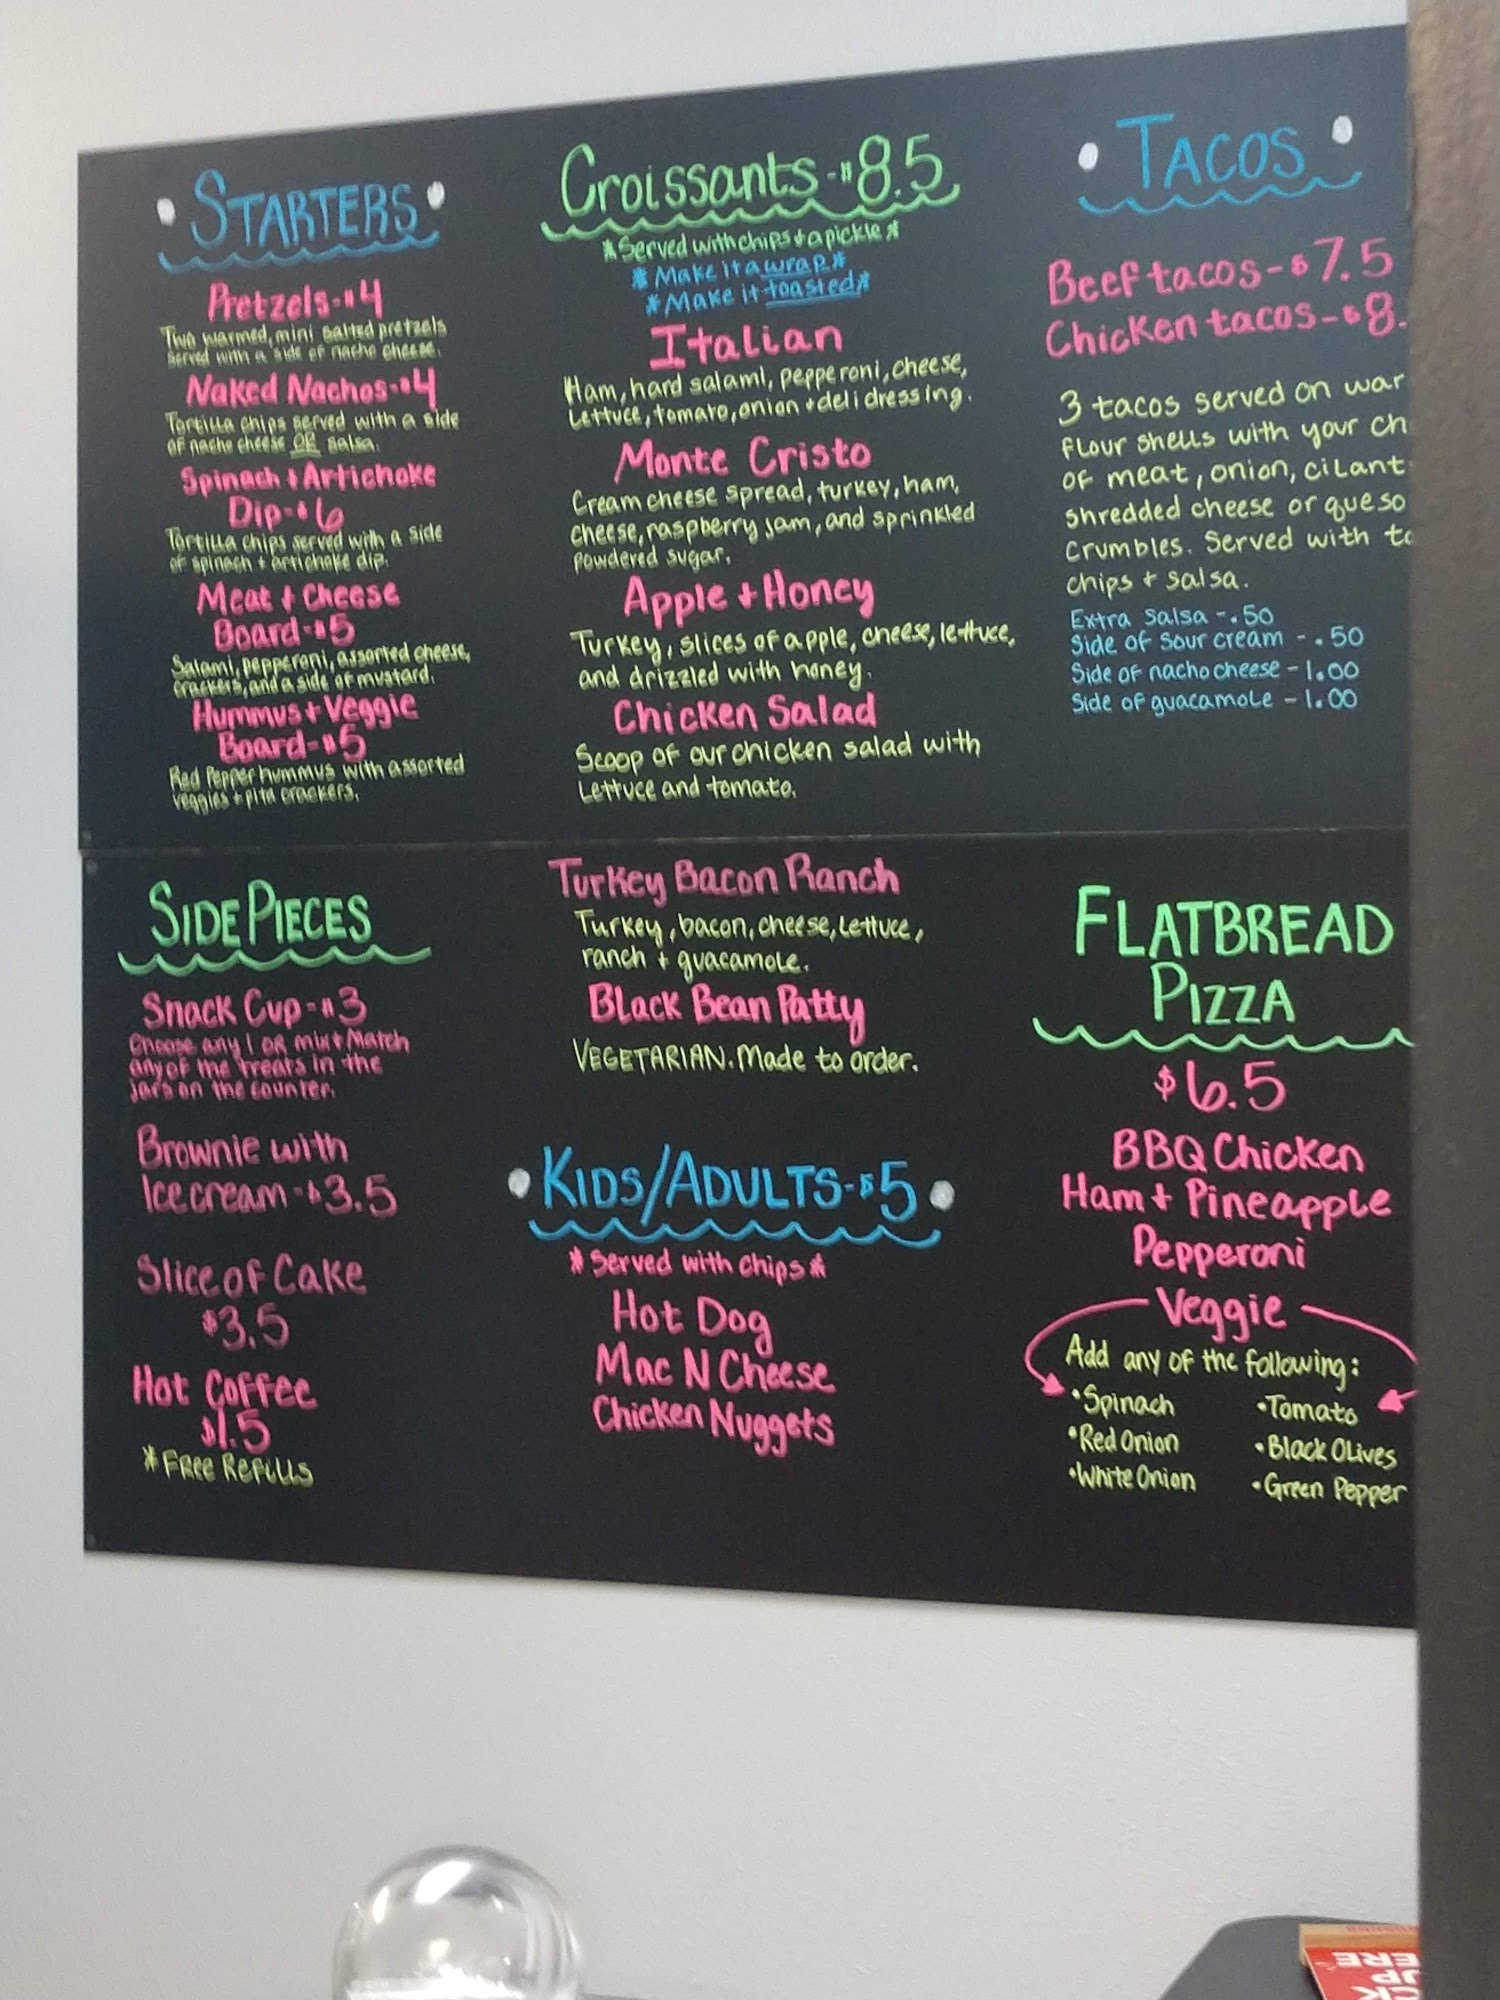 STARTERS
Pretzels-$4
Two warmed, mini salted pretzels
served with a side of nacho cheese.
Naked Nachos-$4
Tortilla chips served with a side
of nacho cheese OR salsa.
Spinach + Artichoke
Dip-$6
Tortilla chips served with a side
of spinach + artichoke dip.
Meat + Cheese
Board-$5
Salami, pepperoni, assorted cheese,
crackers, and a side of mustard.
Hummus + Veggie
Board-$5
Red Pepper hummus with assorted
veggies + pita crackers.
SIDE PIECES
Snack Cup-$3
Choose any 1 OR mix + Match
any of the treats in the
jars on the counter.
Brownie with
Ice cream-$3.5
Slice of Cake
$3.5
Hot Coffee
$1.5
*FREE REFILLS
Croissants-$8.5
*Served with chips + a pickle*
*Make it a wrap*
*Make it toasted*
Italian
Ham, hard salami, pepperoni, cheese,
Lettuce, tomato, onion + deli dressing.
Monte Cristo
Cream cheese spread, turkey, ham,
cheese, raspberry jam, and sprinkled
powdered sugar.
Apple + Honey
Turkey, slices of apple, cheese, lettuce,
and drizzled with honey.
Chicken Salad
Scoop of our chicken salad with
Lettuce and tomato.
Turkey Bacon Ranch
Turkey, bacon, cheese, lettuce,
ranch + guacamole.
Black Bean Patty
VEGETARIAN. Made to order.
KIDS/ADULTS-$5
*Served with chips*
Hot Dog
Mac N Cheese
Chicken Nuggets
TACOS
Beef tacos-$7.5
Chicken tacos-$8.
3 tacos served on war
flour shells with your ch
of meat, onion, cilant
shredded cheese or queso
crumbles. Served with to
chips + salsa.
Extra Salsa -.50
Side of sour cream -.50
Side of nacho cheese -1.00
Side of guacamole -1.00
FLATBREAD
PIZZA
$6.5
BBQ Chicken
Ham + Pineapple
Pepperoni
Veggie
Add any of the following:
•Spinach •Tomato
•Red Onion •Black Olives
•White Onion •Green Pepper